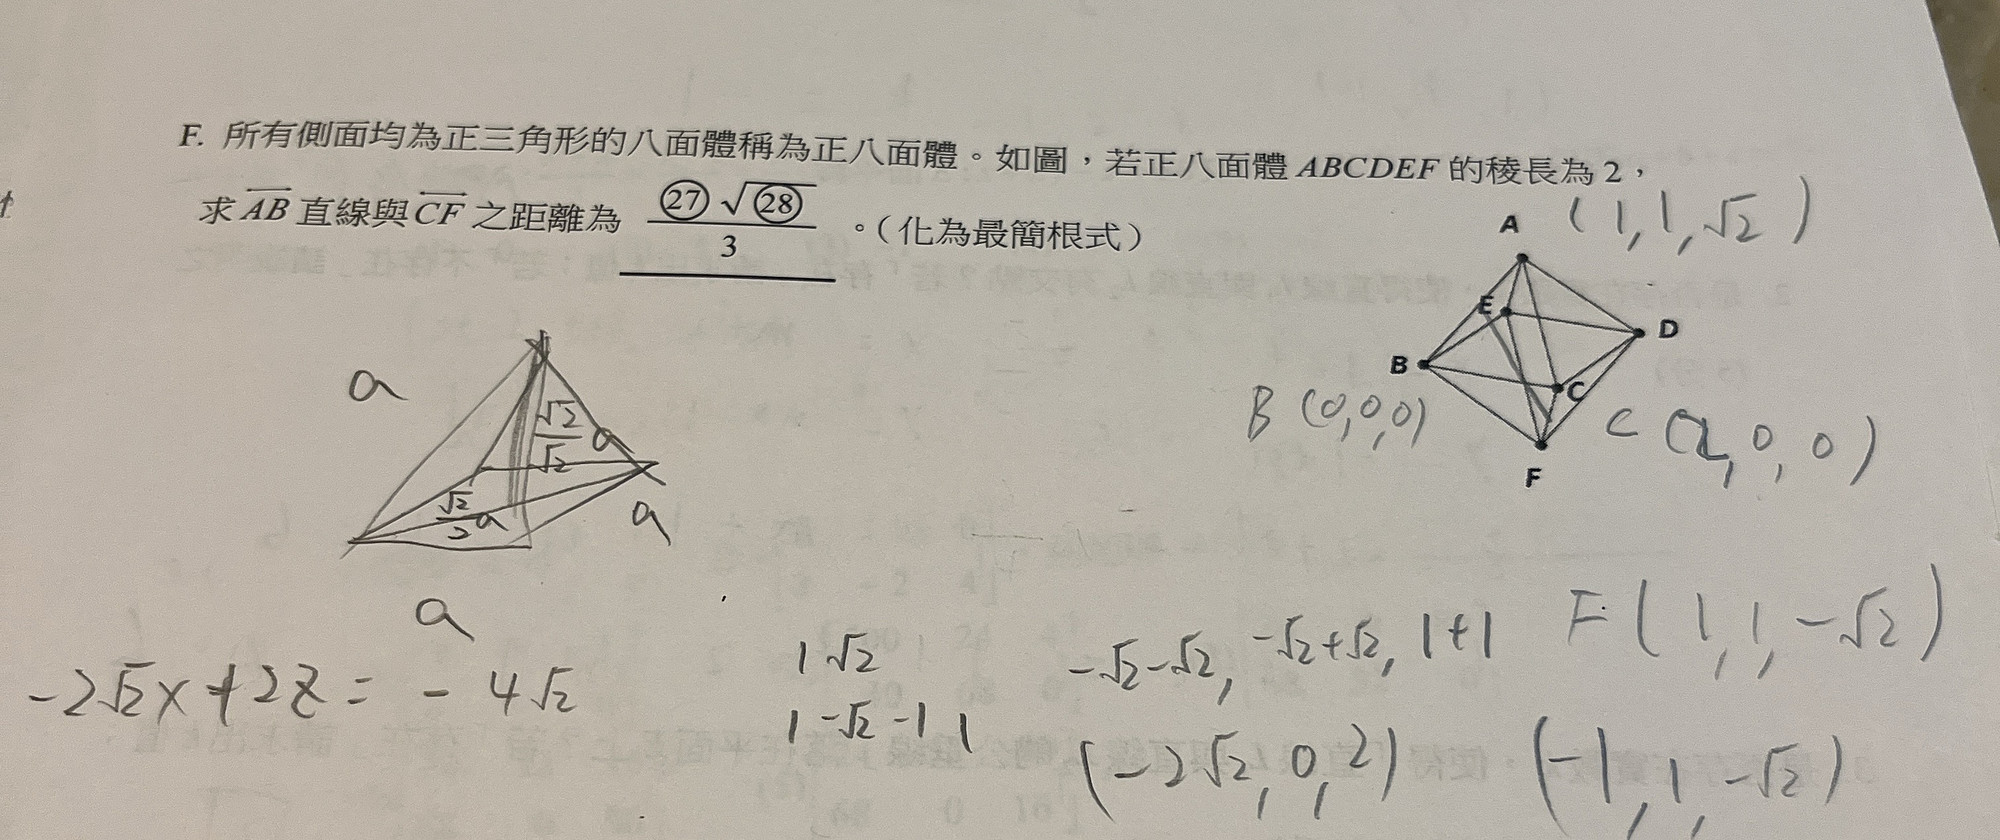 F. 所有側面均為正三角形的八面體稱為正八面體。如圖,若正八面體 ABCDEF 的稜長為 2,
求 AB 直線與 CF 之距離為 ㉗√㉘ / 3 。(化為最簡根式)
A (1,1,√2)
E
D
B
C
B (0,0,0)
C (2,0,0)
F
a
√2/√2 a
√2/2 a
a
a
F (1,1,-√2)
-2√2x+2z = -4√2
1 √2
1 -√2 -1 1
-√2-√2, -√2+√2, 1+1
(-2√2, 0, 2)
(-1, 1, -√2)